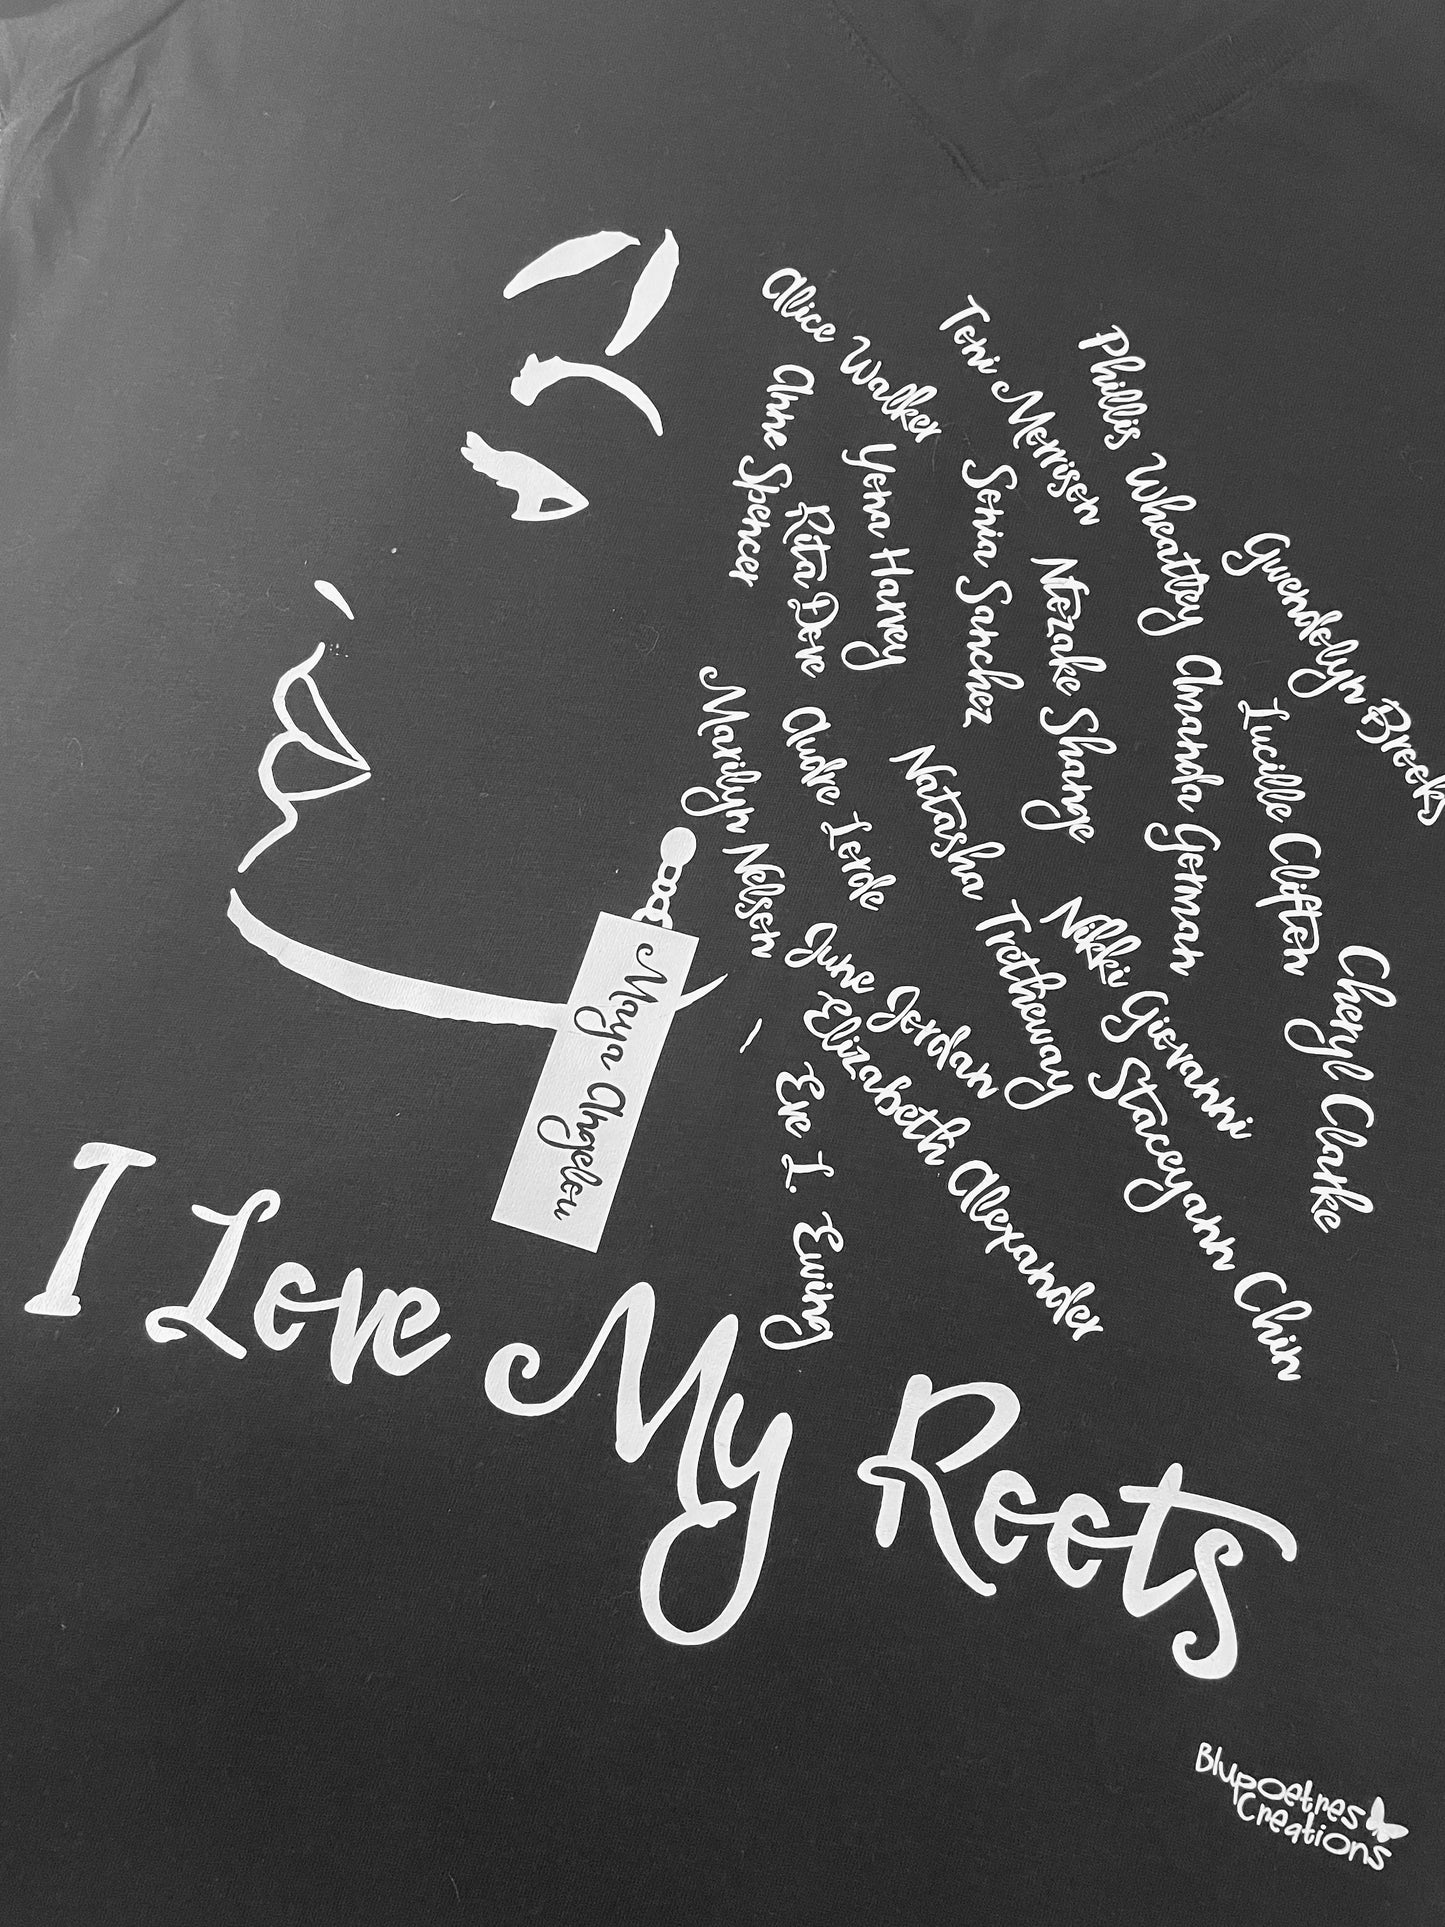 Alice Walker
Toni Morrison
Phillis Wheatley
Gwendolyn Brooks
Anne Spencer
Yona Harvey
Sonia Sanchez
Ntozake Shange
Amanda Gorman
Lucille Clifton
Cheryl Clarke
Rita Dove
Audre Lorde
Natasha Tretheway
Nikki Giovanni
Staceyann Chin
Marilyn Nelson
June Jordan
Elizabeth Alexander
Eve L. Ewing
Maya Angelou
I Love My Roots
Blupoetres
Creations